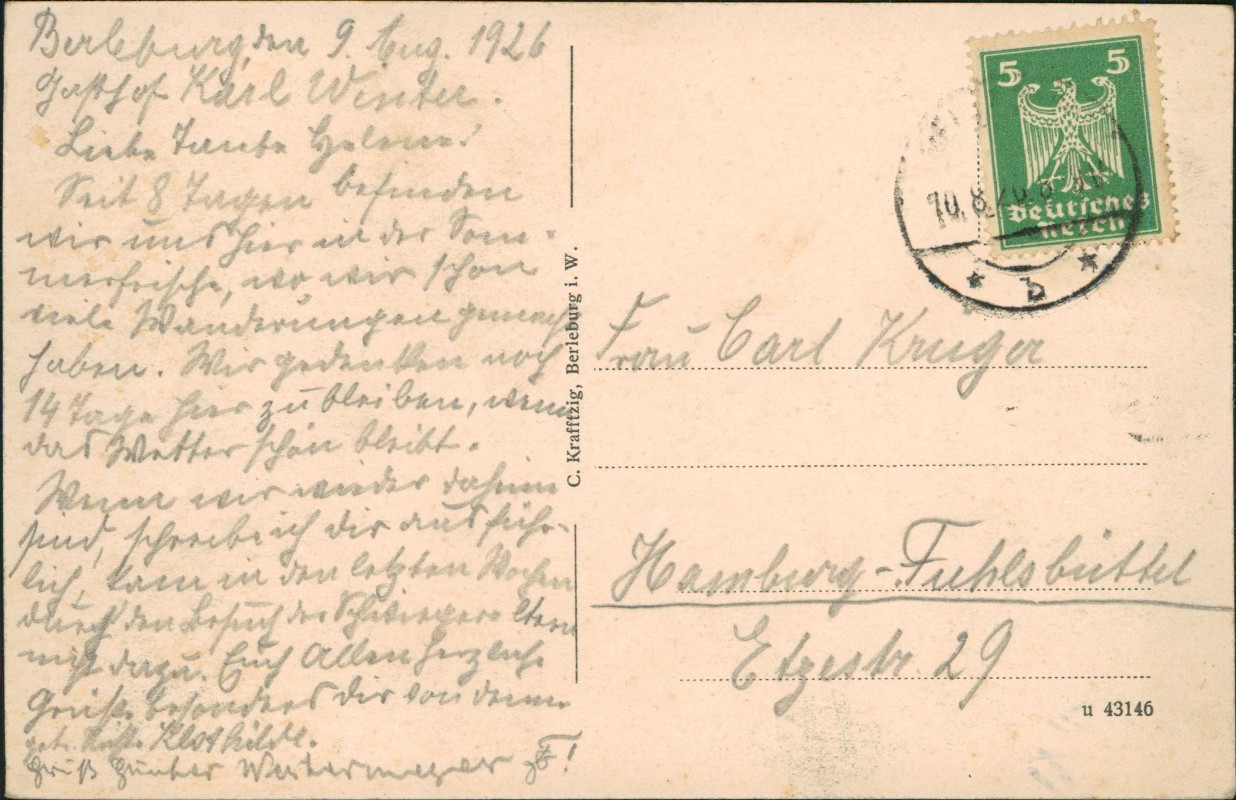 Berleburg, den 9. Aug. 1926
Gasthof Karl Winter.
Liebe Tante Helene!
Seit 8 Tagen befinden
wir uns hier in der Som-
merfrische, wo wir schon
viele Wanderungen gemacht
haben. Wir gedenken noch
14 Tage hier zu bleiben, wenn
das Wetter schön bleibt.
Wenn wir wieder daheim
sind, schreibe ich dir ausführ-
lich, kam in den letzten Wochen
durch den Besuch der Schwiegereltern
nicht dazu. Euch Allen herzliche
Grüße besonders dir von deiner
Klothilde.
Gruß Günter
C. Krafftzig, Berleburg i. W.
5 5
Deutsches
Reich
10.8.26.
* b *
Frau Carl Krüger
Hamburg-Fuhlsbüttel
Etzestr 29
u 43146